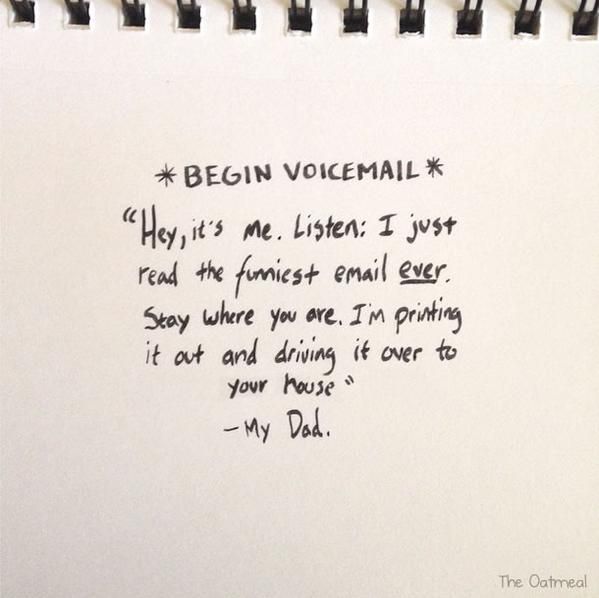 *BEGIN VOICEMAIL*
"Hey, it's me. Listen: I just
read the funniest email ever.
Stay where you are. I'm printing
it out and driving it over to
your house"
-My Dad.
The Oatmeal